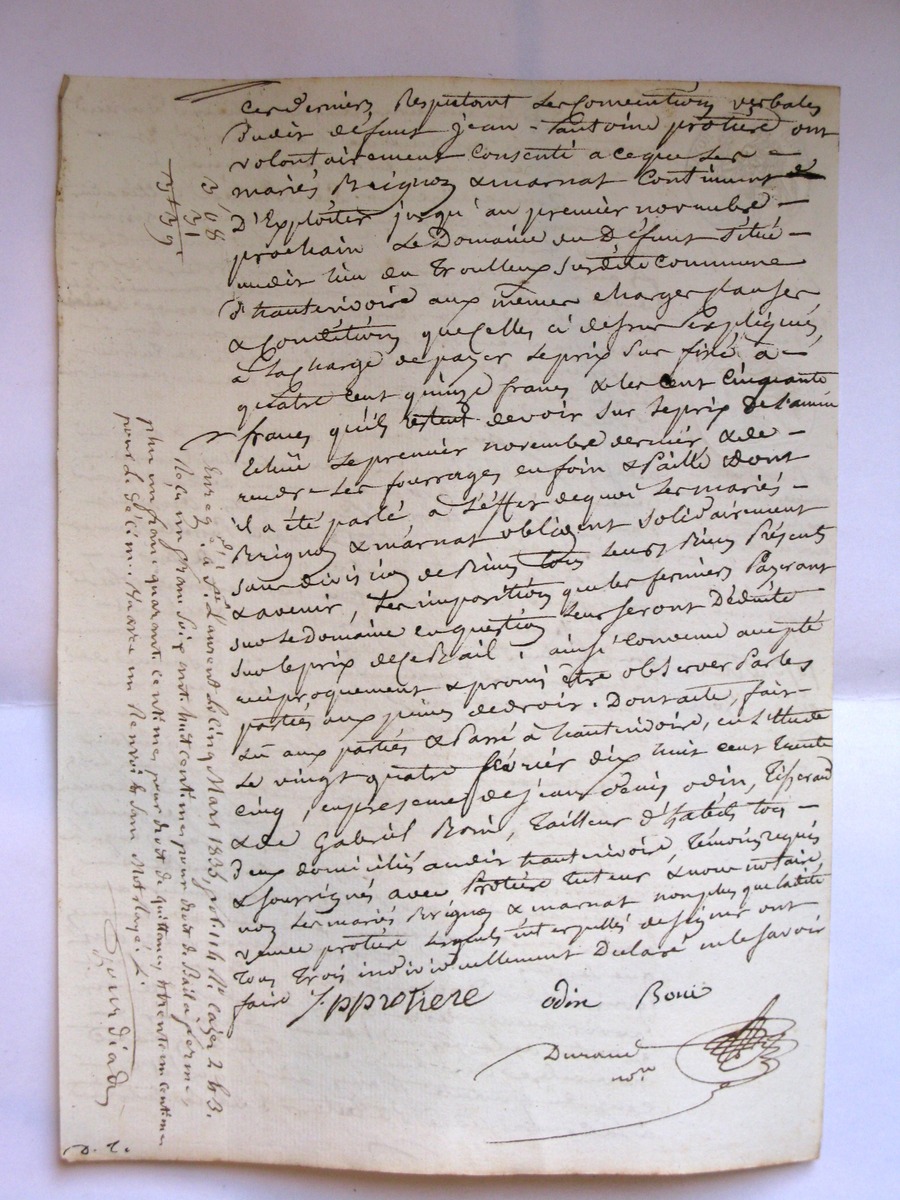 ces derniers Respectant les Conventions verbales
Dudit défunt jean-Lantoine protière ont
volontairement Consenti a ceque les -
mariés Brignon & marnat Continuent
D'Exploiter jusqu'au premier novembre -
prochain Le Domaine du Défunt Situé -
audit lieu du Trouilleux Susdite Commune
d'hauterivoire aux mêmes charges Clauses
& Conditions que Celles ci dessus Expliquées
à la charge de payer le prix Sur fixé à -
quatre cent quinze francs & les cent cinquante
francs qu'ils restent devoir sur le prix De l'année
Echue Le premier novembre dernier, & de -
rendre les fourrages en foin & Paille Dont
il a été parlé, a l'Effet de quoi les mariés -
Brignon & marnat obligent solidairement
sans division de Biens tous leurs Biens Présents
& avenir, Les imposition que les fermiers Payeront
sur le Domaine en question leur seront Déduite
sur le prix de Ce Bail ; ainsi Convenu accepté
réciproquement & promis être observer Par les
parties aux peines de droit. Dont acte, fait -
Lû aux parties & Passé à hauterivoire, en L'Etude
Le vingt quatre février dix huit cent trente
cinq, en presence de jean Denis odin, Tisserand
& de Gabriel Boni, Tailleur d'habits tous -
Deux domiciliés audit hauterivoire Témoins requis
& soussignés avec Protière tuteur & nous notaire,
non les mariés Brignon & marnat non plus que ladite
veuve protière lesquels interpellés de signer ont
tous Trois individuellement Déclaré ne le savoir
faire
protiere odin Boni
Durand
nore
3,08
31
3,39
Enregé. à St. Laurent le cinq Mars 1835, f. 114 Vo. Cases 2 & 3.
Reçu un franc soixante huit centimes pour droit de Bail a ferme,
plus un franc quarante centimes pour droit de quittance & trente un centimes
pour le Décime. Avec un Renvoi & Sans Mot Rayé.
Jourdiada
D. R.